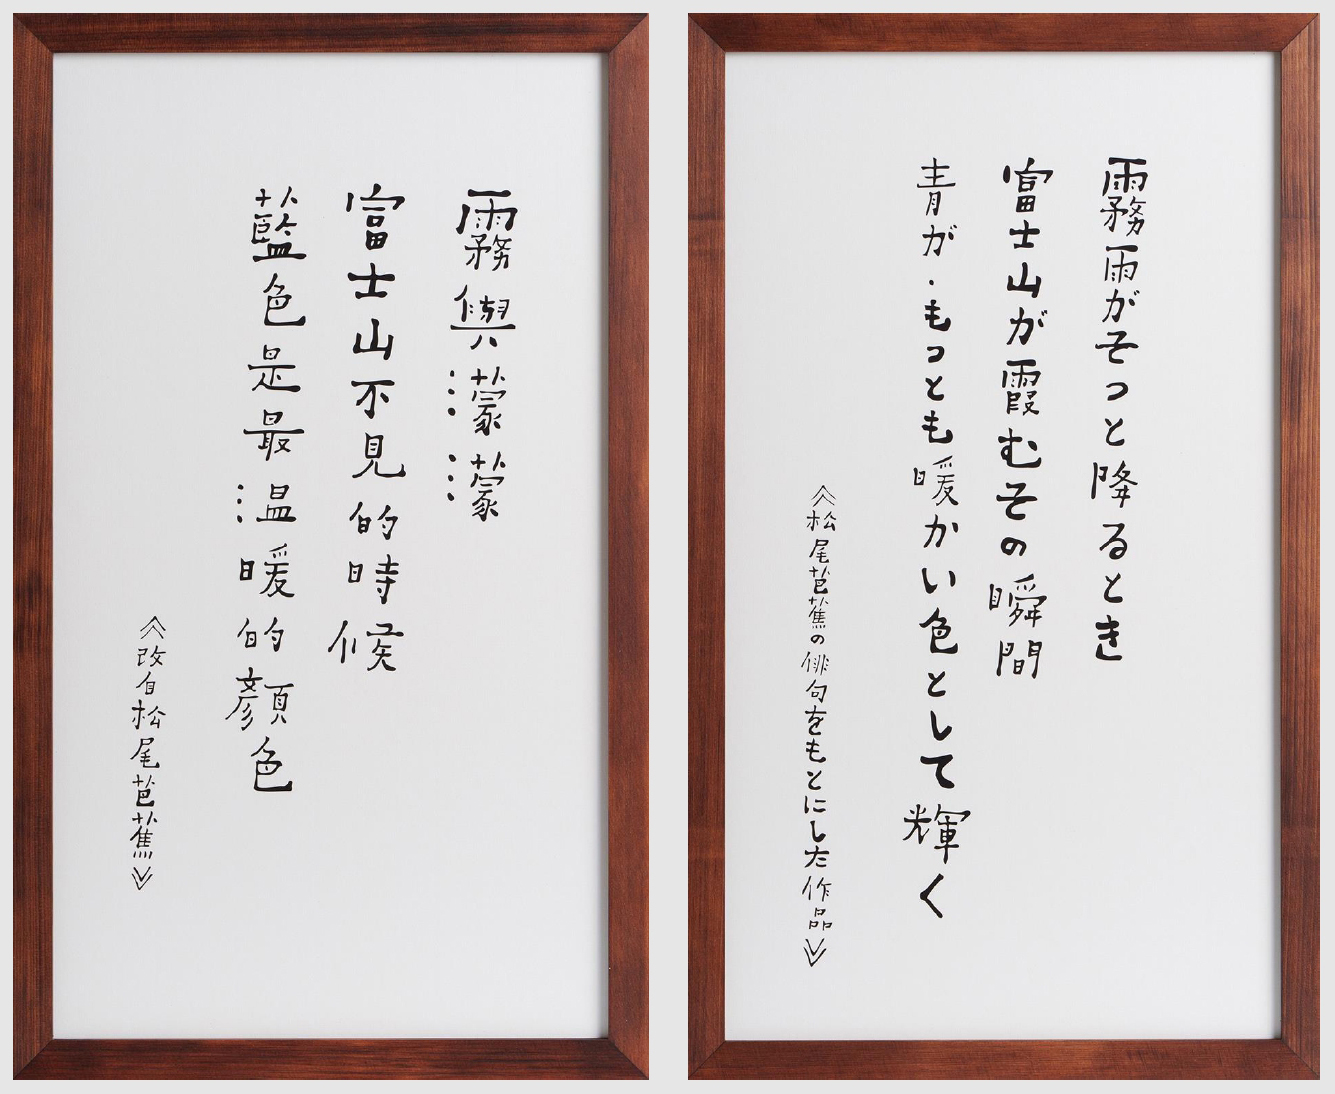 霧與濛濛
富士山不見的時候
藍色是最温暖的顏色
《改自松尾芭蕉》
霧雨がそっと降るとき
富士山が霞むその瞬間
青が・もっとも暖かい色として輝く
《松尾芭蕉の俳句をもとにした作品》